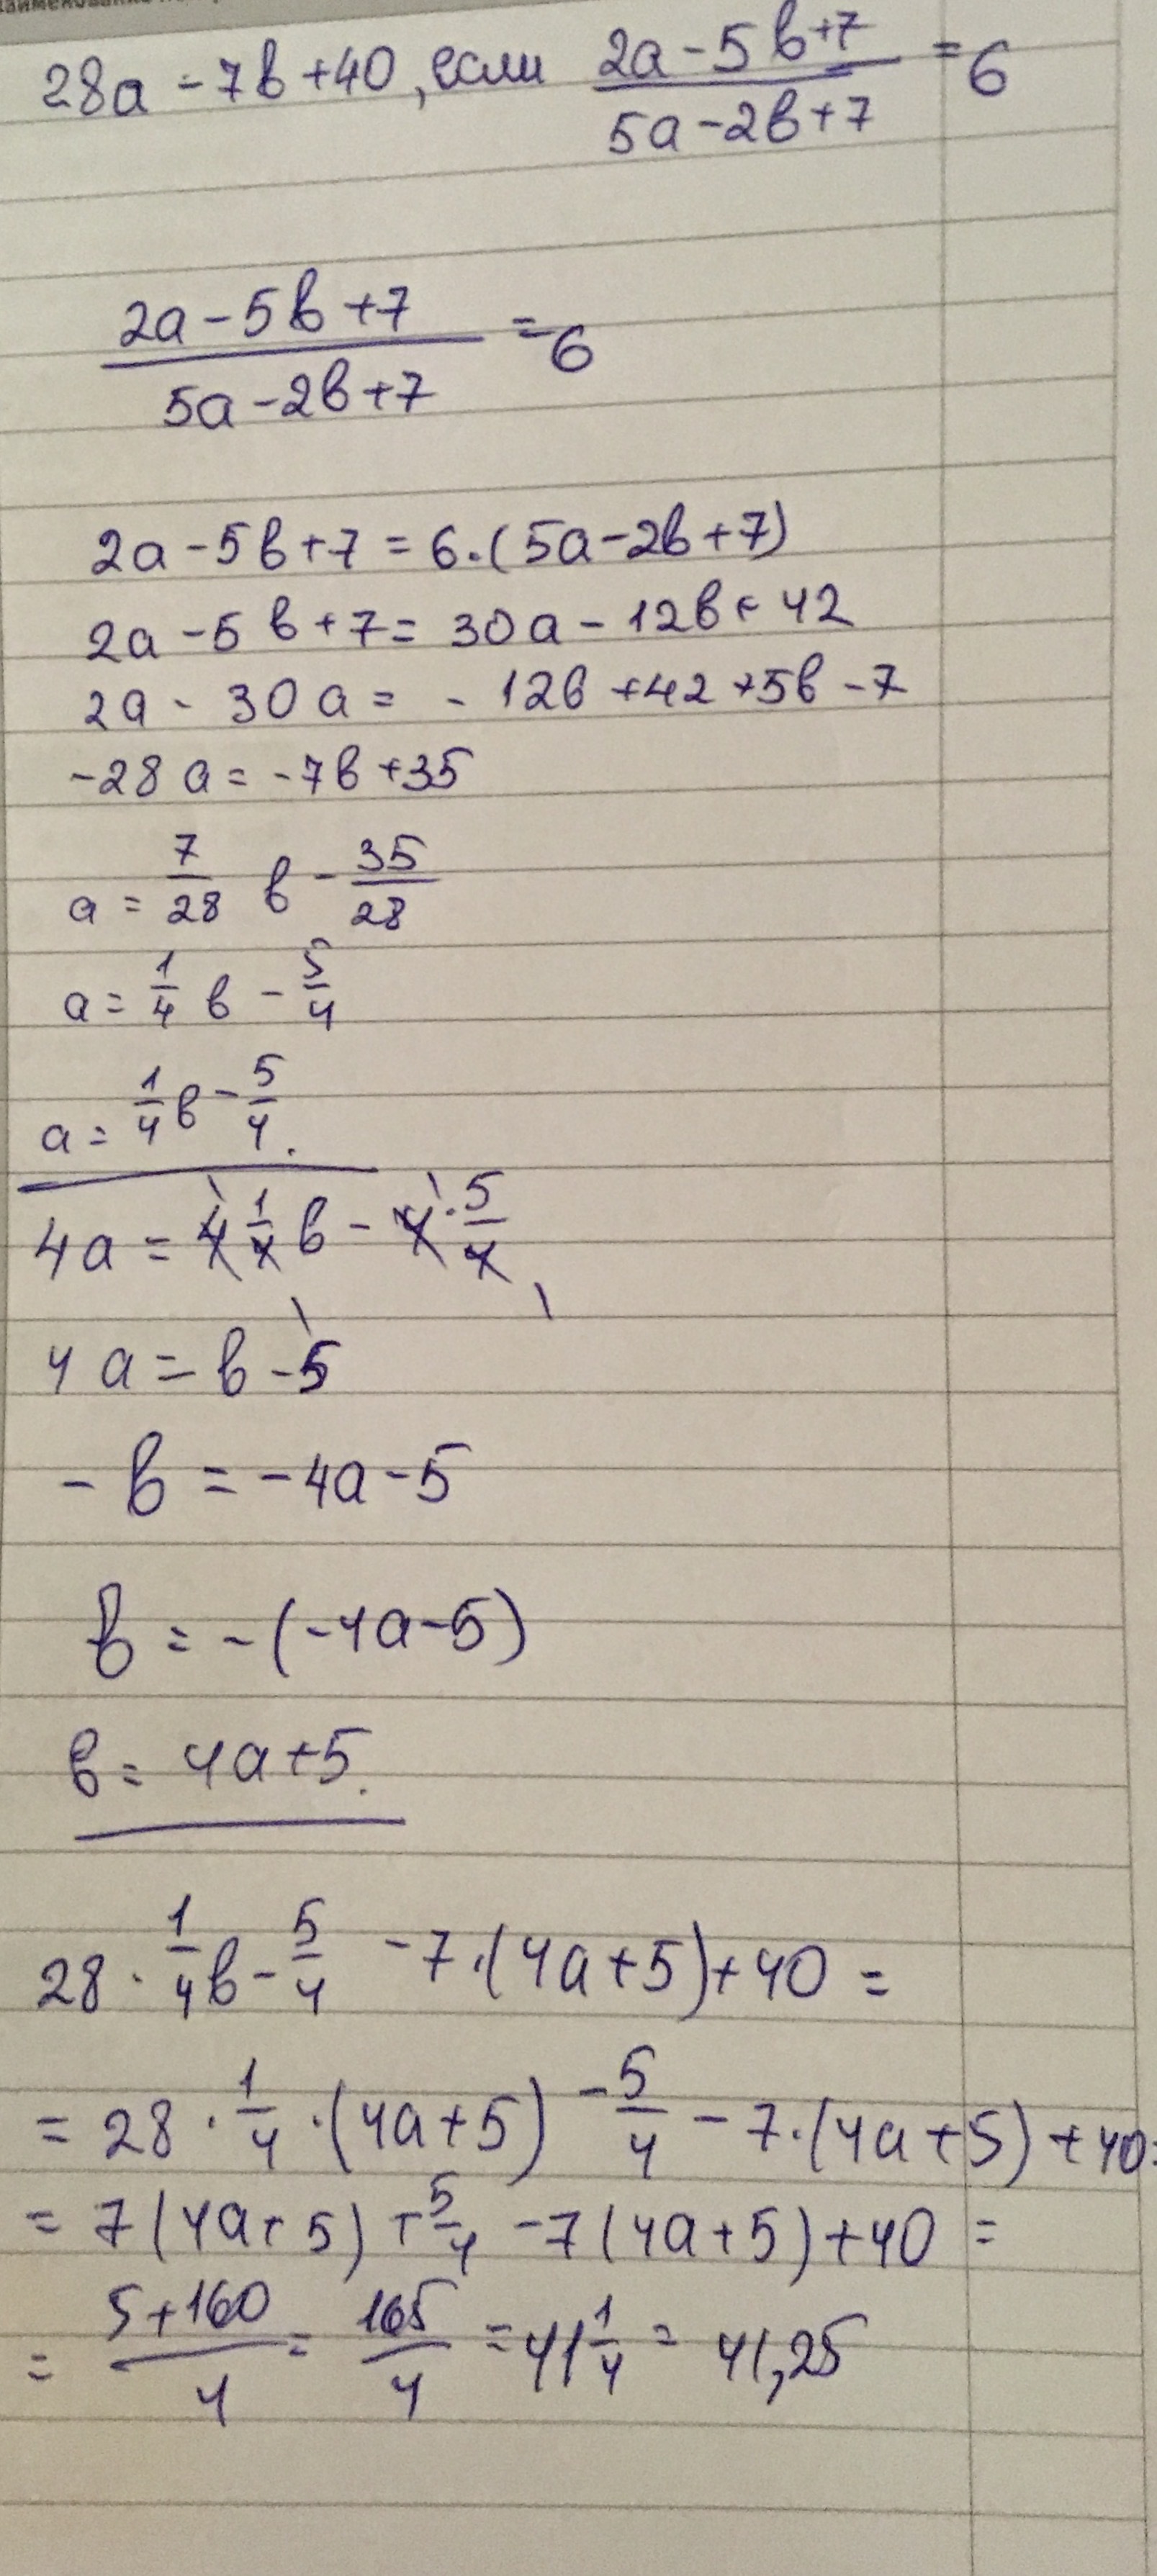 28a - 7b + 40, если (2a - 5b + 7)/(5a - 2b + 7) = 6
(2a - 5b + 7)/(5a - 2b + 7) = 6
2a - 5b + 7 = 6·(5a - 2b + 7)
2a - 5b + 7 = 30a - 12b + 42
2a - 30a = - 12b + 42 + 5b - 7
-28a = -7b + 35
a = 7/28 b - 35/28
a = 1/4 b - 5/4
a = 1/4 b - 5/4.
4a = 4 1/4 b - 4 · 5/4
4a = b - 5
- b = -4a - 5
b = -(-4a - 5)
b = 4a + 5.
28 · 1/4 b - 5/4 - 7·(4a + 5) + 40 =
= 28 · 1/4 · (4a + 5) - 5/4 - 7·(4a + 5) + 40 =
= 7(4a + 5) + 5/4 - 7(4a + 5) + 40 =
= (5 + 160)/4 = 165/4 = 41 1/4 = 41,25